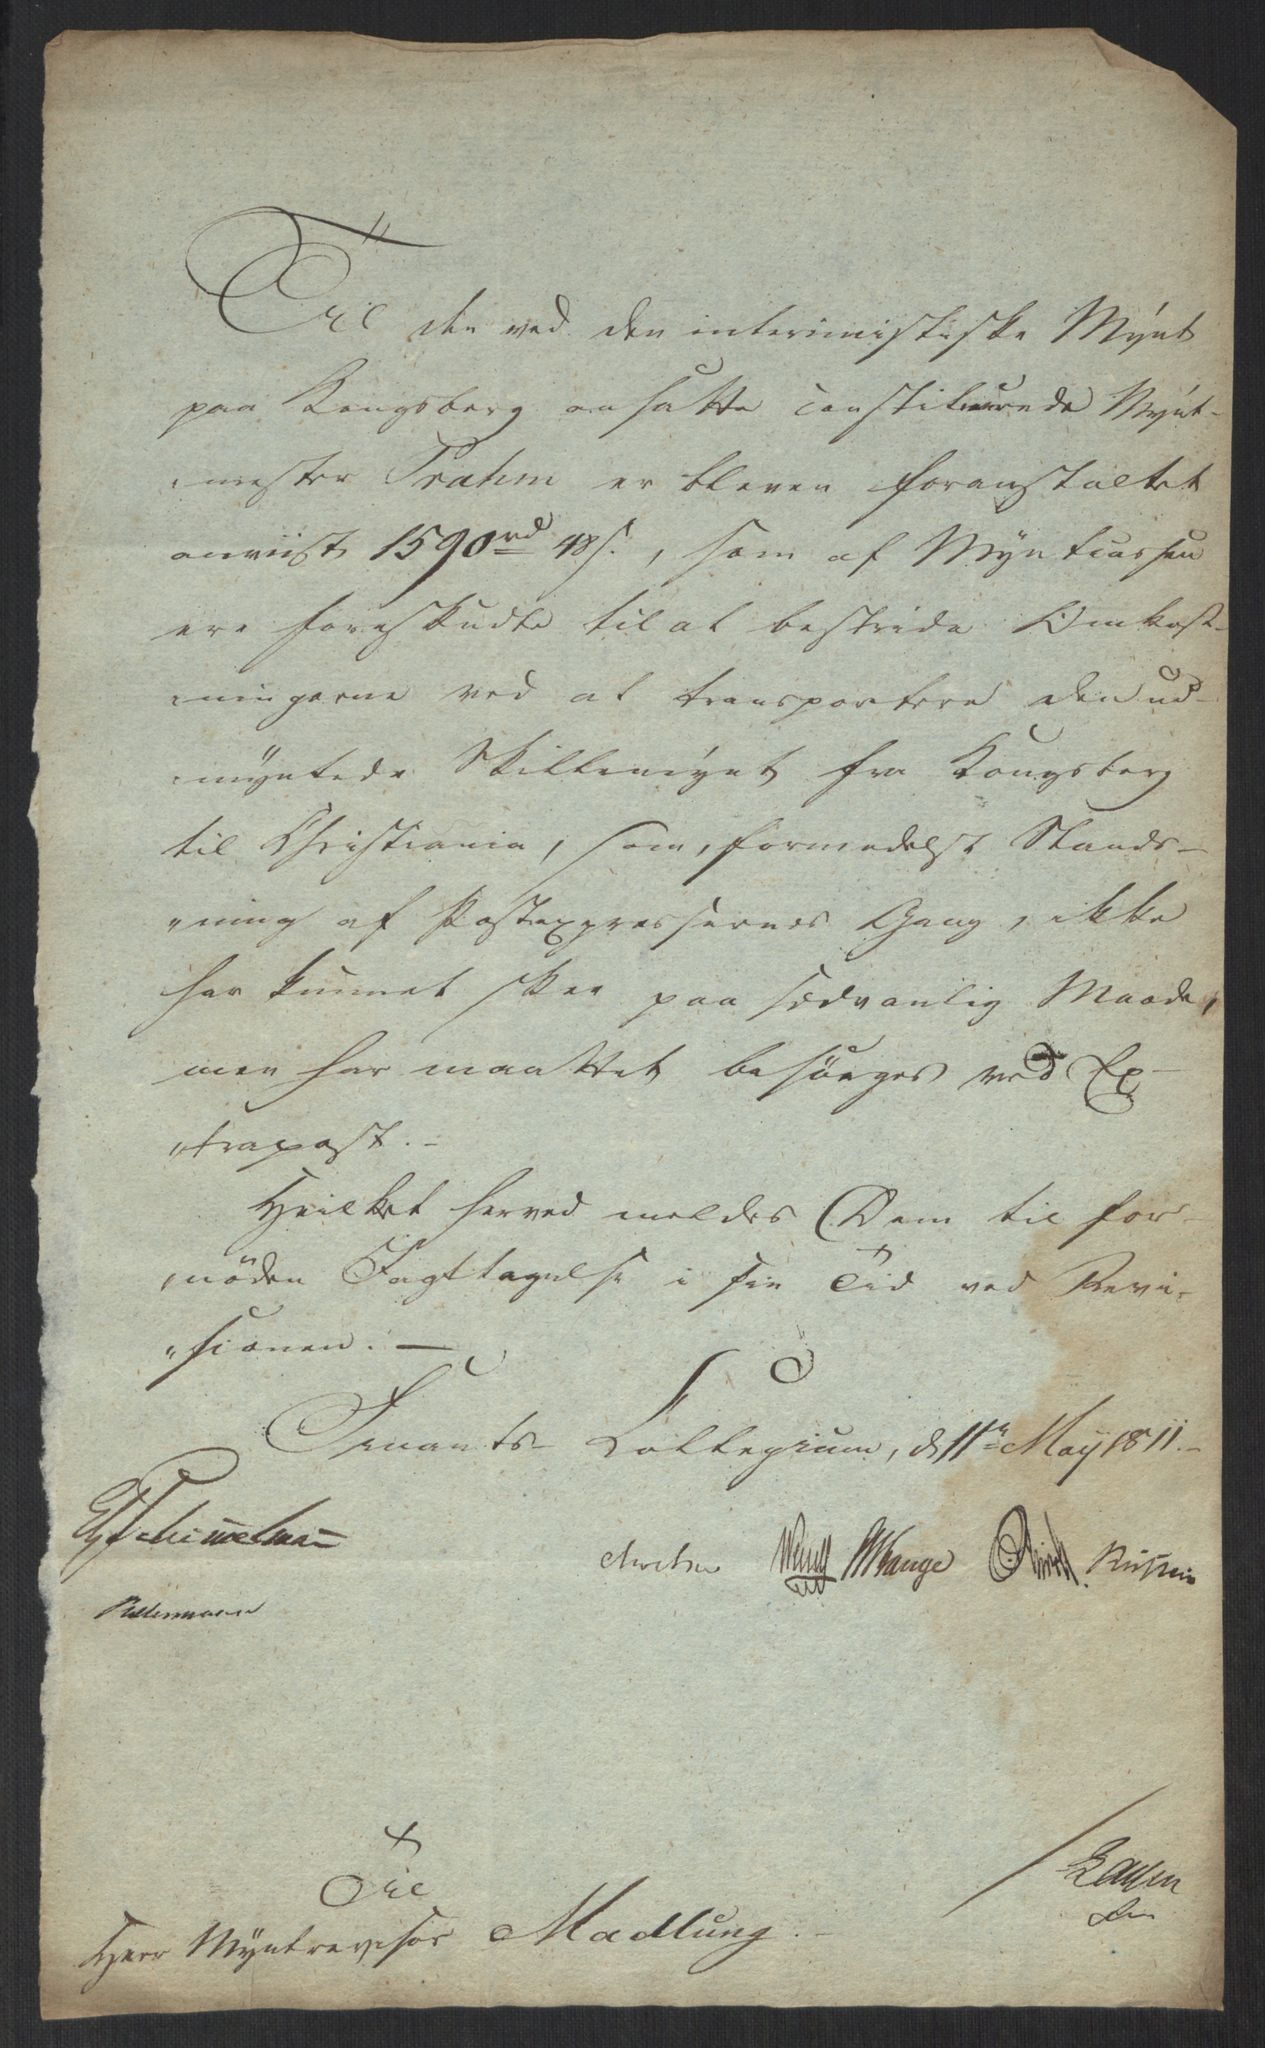 Til den ved den interimistiske Mÿnt
paa Kongsberg ansatte constituerede Mÿnt-
mester Prahm er bleven foranstaltet
anviist 1590 rd 48 s., som af Mÿntcassen
ere forskudte til at bestride Omkost-
ningerne ved at transportere den ud-
mÿntede Skillemÿnt fra Kongsberg
til Christiania, som, formedelst Stands-
ning af Postexpressernes Gang, ikke
har kunnet skee paa sædvanlig Maade,
men har maattet besörges ved Ex-
trapost.-
Hvilket herved meldes Dem til for-
nöden Iagttagelse i sin Tid ved Revi-
sionen. —
Finants-Collegium, d. 11te Maÿ 1811.-
Schimmelmann
Lange
Til
Herr Mÿntrevisor Madlung.-